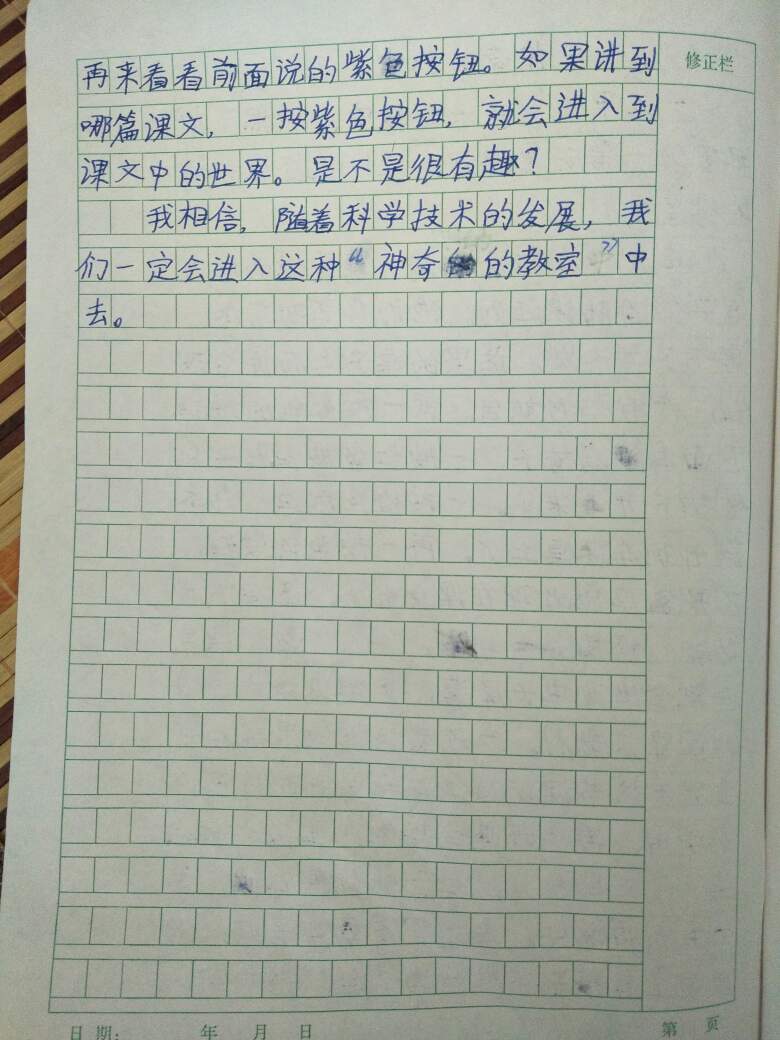 再来看看前面说的紫色按钮。如果讲到
修正栏
哪篇课文,一按紫色按钮,就会进入到
课文中的世界。是不是很有趣?
我相信,随着科学技术的发展,我
们一定会进入这种“神奇的教室”中
去。
日期: 年 月 日
第 页